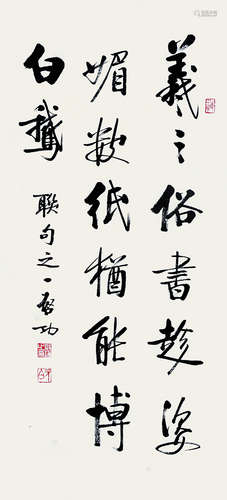 羲之俗書趁姿
媚數紙猶能博
白鵝
聯句之一啓功